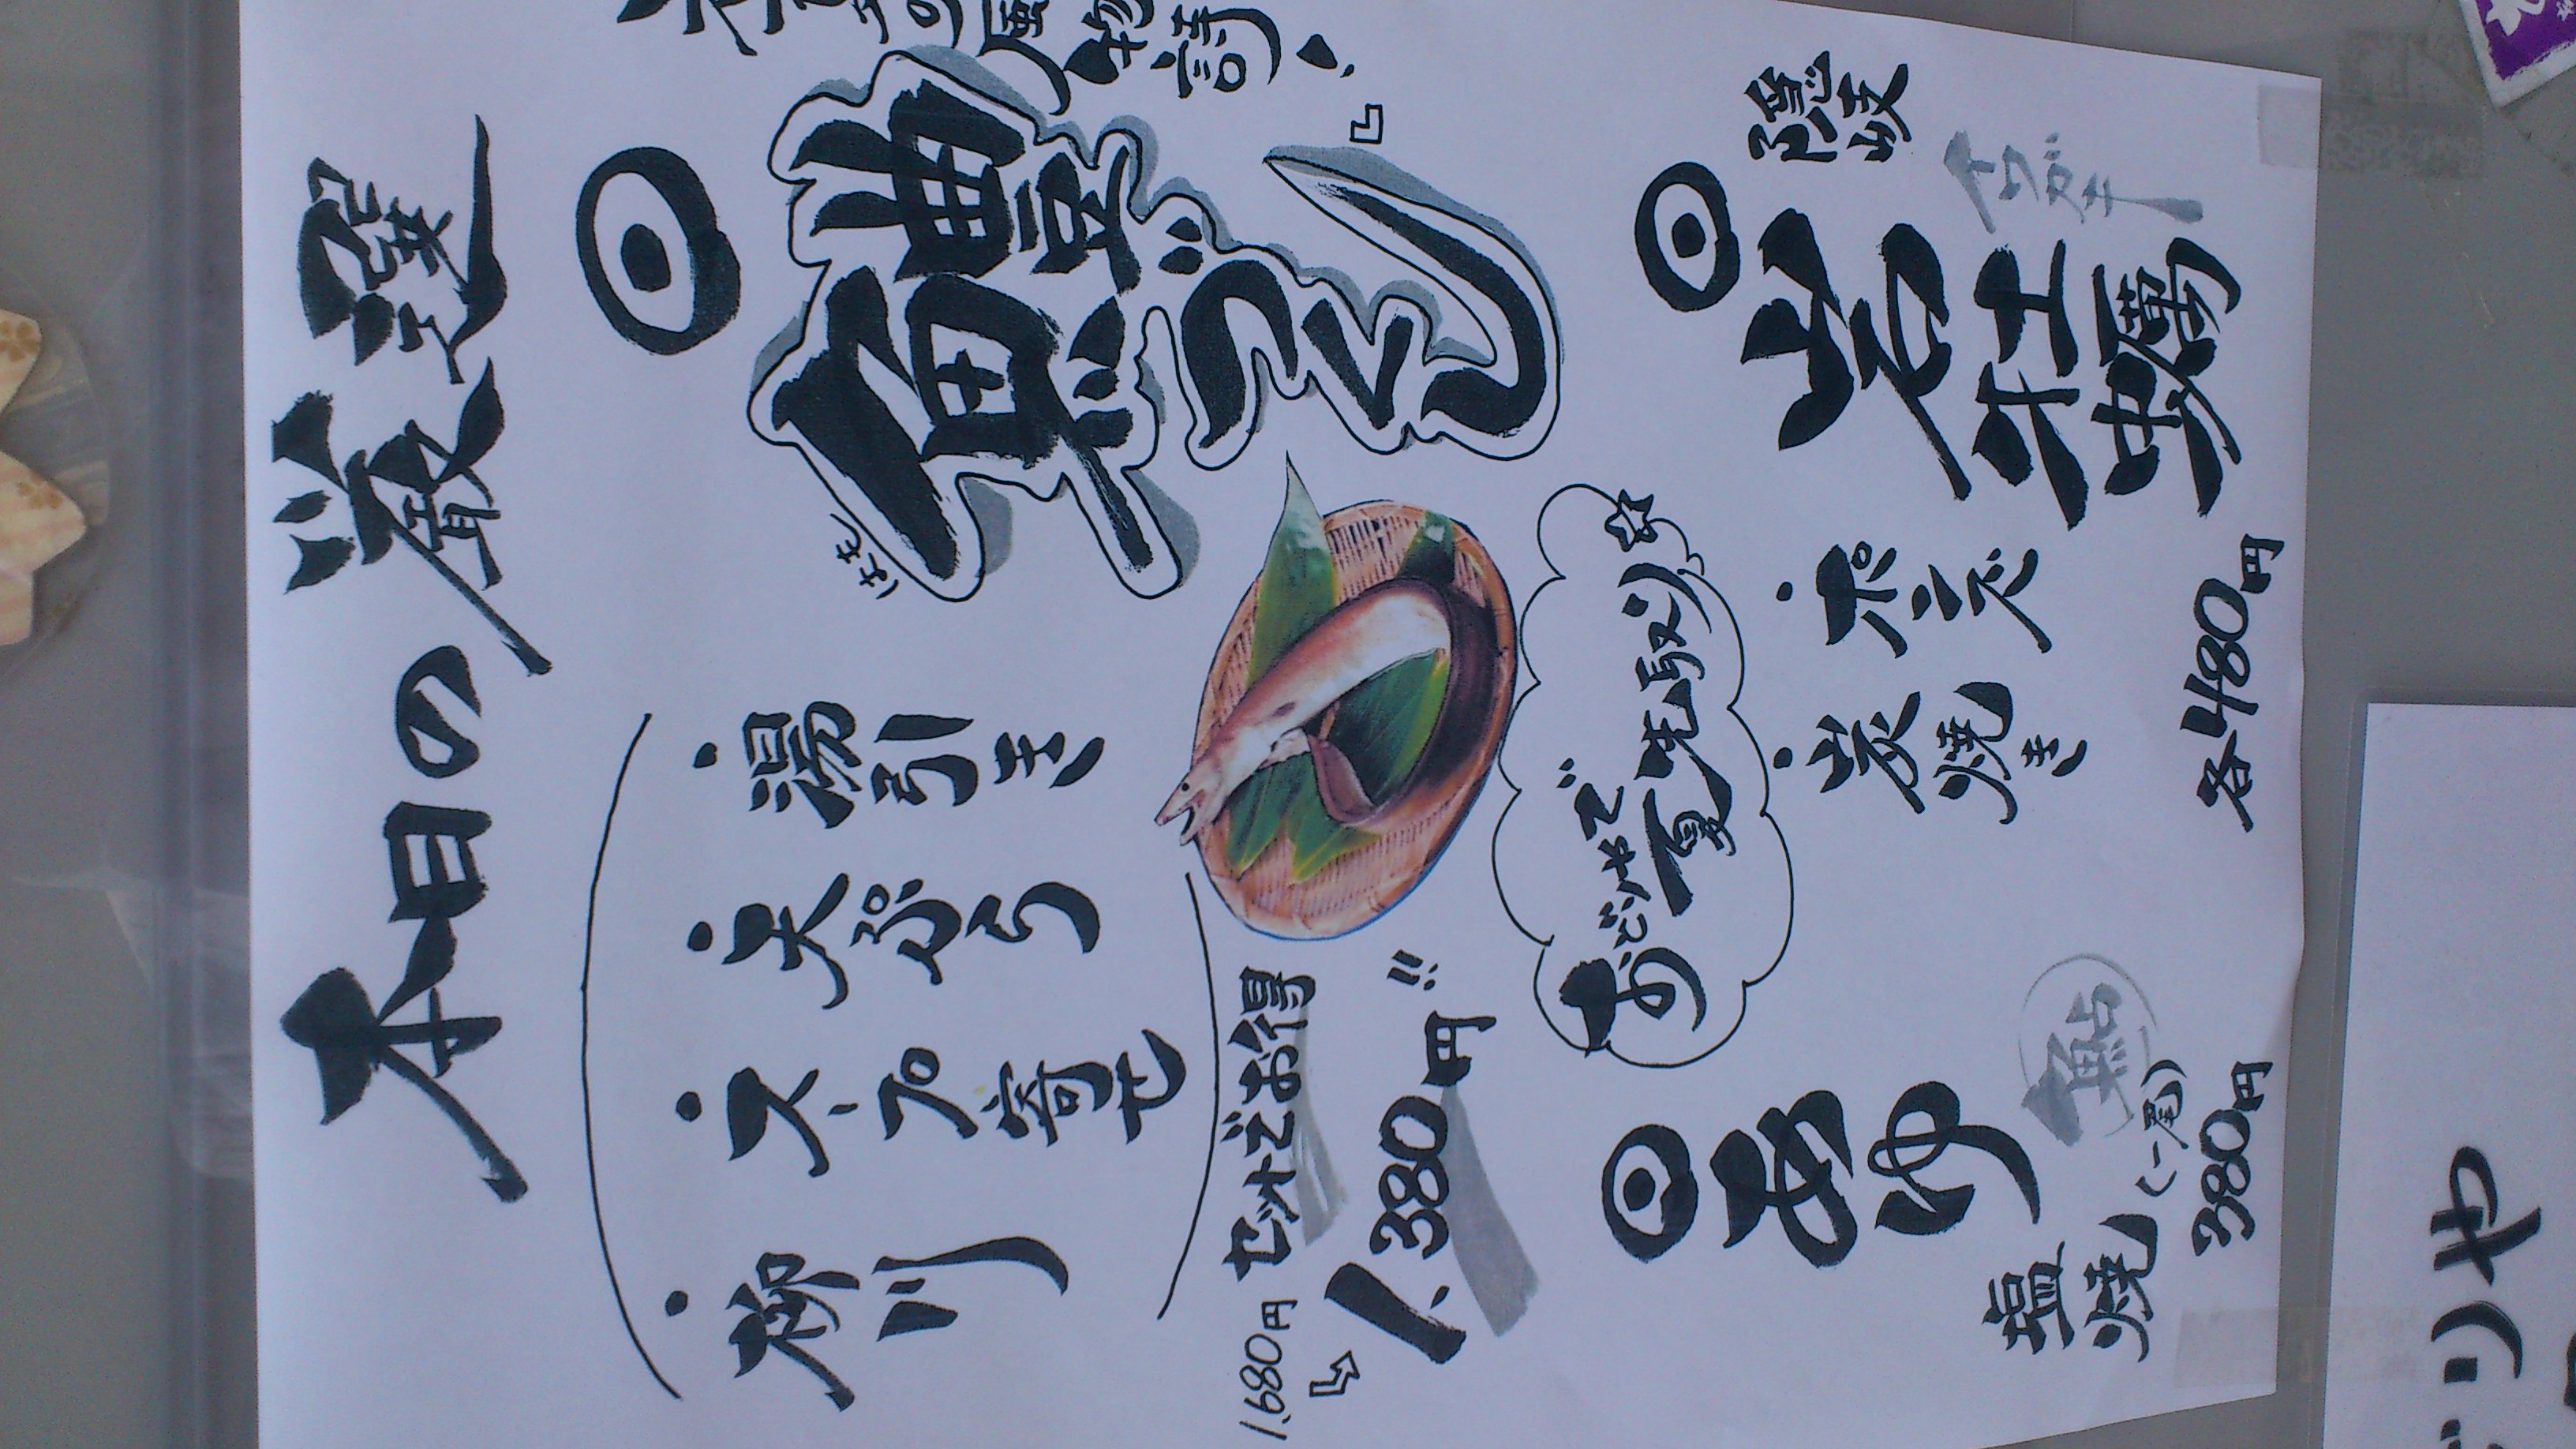 本日の厳選
の風物詩！
◎鱧づくし
はも
・湯引き
・天ぷら
・スープ寄せ
・柳川
1,680円
セットでお得
1,380円
おどやで夏先取り☆
隠岐
◎岩牡蠣
イワガキ
・ポン酢
・炭焼き
各480円
◎あゆ
鮎
塩焼(一尾)
380円